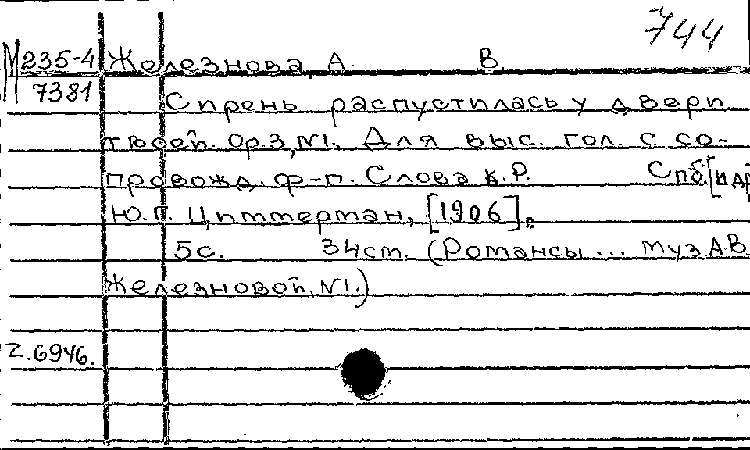 744
М 235-4 Железнова, А. В.
7381
Сирень распустилась у двери
твоей. Op.3, №1. Для выс. гол. с со-
провожд. ф-п. Слова К.Р. Спб, [и др.]
Ю.Г. Циммерман, [1906].
5с. 34cm. (Романсы... муз А.В.
Железновой, №1.)
2.6946.